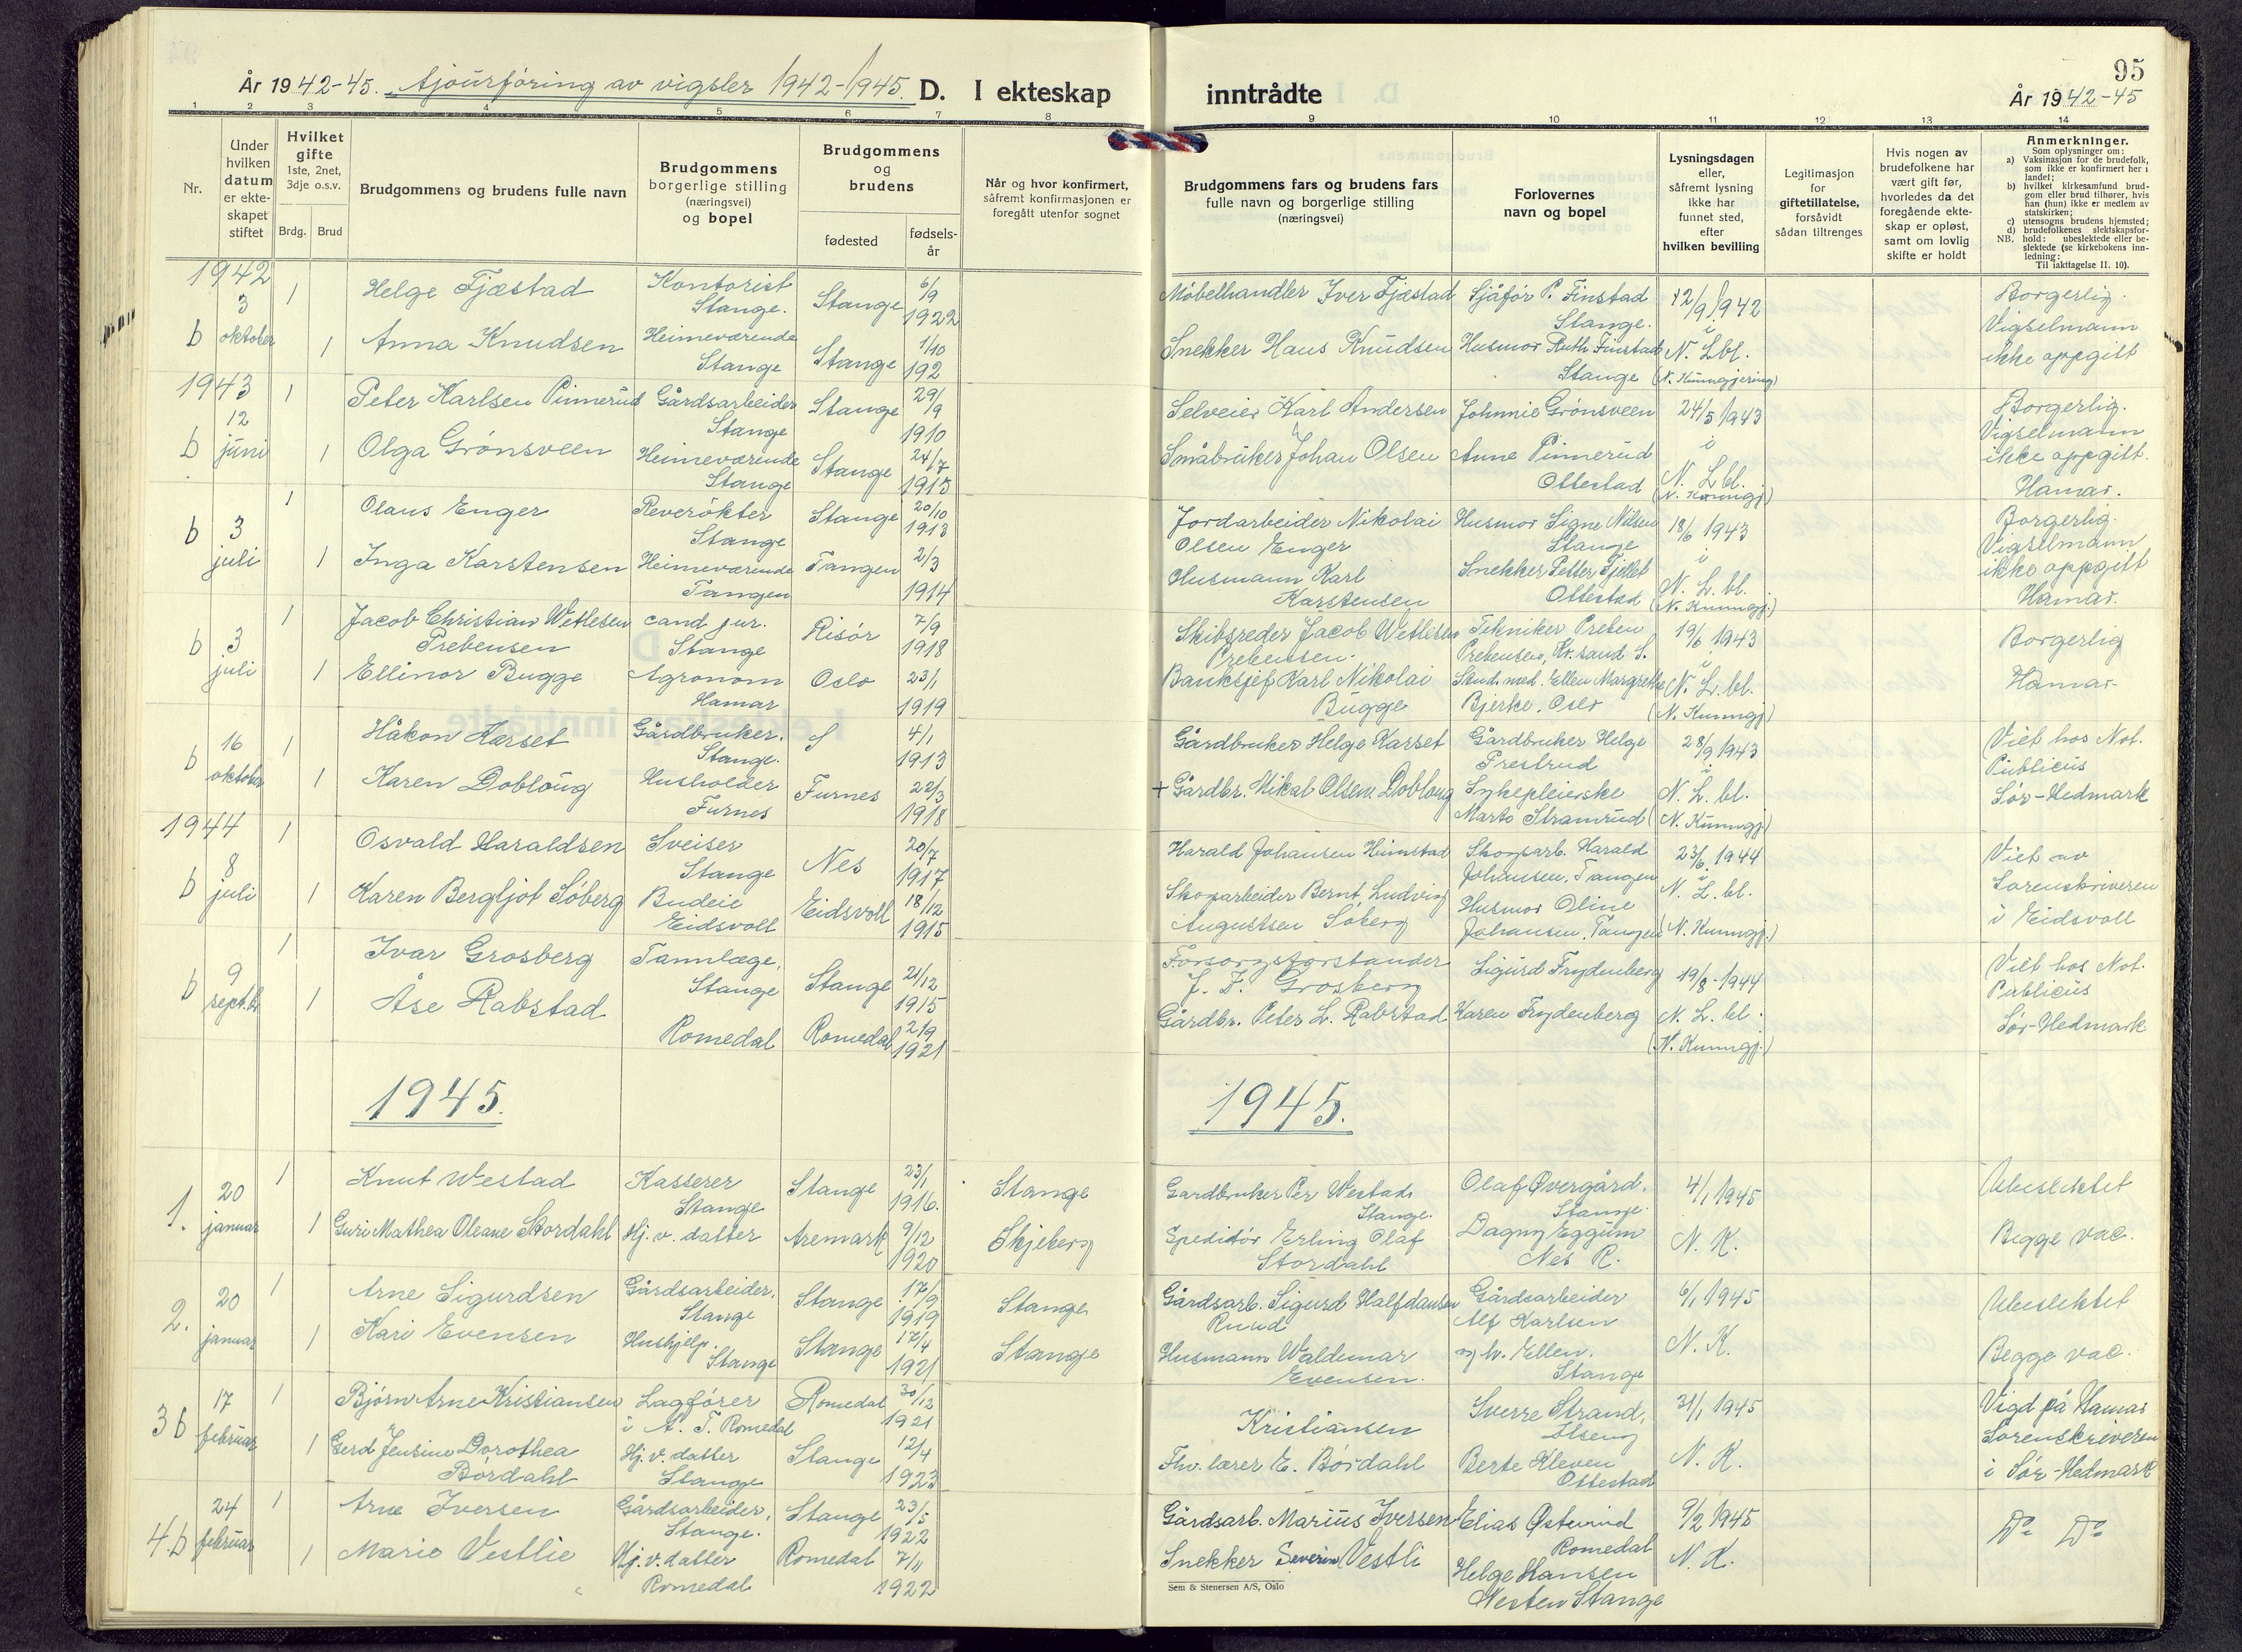 År 1942-45. Ajourføring av vigsler 1942-1945. D. I ekteskap
1 2 3 4 5 6 7 8
Nr.
Under hvilken datum er ekteskapet stiftet
Hvilket gifte 1ste, 2net, 3dje o.s.v.
Brdg. Brud
Brudgommens og brudens fulle navn
Brudgommens borgerlige stilling (næringsvei) og bopel
Brudgommens og brudens
fødested
fødselsår
Når og hvor konfirmert, såfremt konfirmasjonen er foregått utenfor sognet
1942
b 3 oktober
1 Helge Fjæstad Kontorist Stange. Stange 6/9 1922
1 Anna Knudsen Heimeværende Stange Stange 1/10 192
1943
b 12 juni
1 Peter Karlsen Pinnerud Gårdsarbeider Stange Stange 29/9 1910
1 Olga Grønsveen Heimeværende Stange Stange 24/7 1915
b 3 juli
1 Olaus Enger Reverøkter Stange Stange 20/10 1913
1 Inga Karstensen Heimeværende Tangen Tangen 2/3 1914
b 3 juli
1 Jacob Christian Wetlesen Prebensen cand jur. Stange Risør 7/9 1918
1 Ellinor Bugge Agronom Hamar Oslo 23/1 1919
b 16 oktober
1 Håkon Karset Gårdbruker. Stange. S 4/1 1913
1 Karen Dobloug Husholder Furnes Furnes 22/3 1918
1944
b 8 juli
1 Osvald Haraldsen Sveiser Stange Nes 20/7 1917
1 Karen Bergljot Søberg Budeie Eidsvoll Eidsvoll 18/12 1915
b 9 septbr
1 Ivar Grosberg Tannlæge, Stange Stange 21/12 1915
1 Åse Rabstad Romedal Romedal 2/9 1921
1945.
1. 20 januar
1 Knut Westad Kasserer Stange Stange 23/1 1916. Stange
1 Guri Mathea Oleane Stordahl Hj. v. datter Aremark 9/12 1920 Skjeberg
2. 20 januar
1 Arne Sigurdsen Gårdsarbeider. Stange Stange 17/9 1919 Stange
1 Kari Evensen Hushjelp. Stange Stange 17/4 1921 Stange
3 b 17 februar
1 Bjørn Arne Kristiansen Lagfører i A. T. Romedal Romedal 30/12 1921
1 Gerd Jensine Dorothea Børdahl Hj. v. datter Stange Stange 12/4 1923
4. b 24 februar
1 Arne Iversen Gårdsarbeider, Stange. Stange 23/5 1922
1 Marie Vestlie Hj. v. datter Romedal Romedal 7/11 1922
95
inntrådte År 1942-45
9 10 11 12 13 14
Brudgommens fars og brudens fars fulle navn og borgerlige stilling (næringsvei)
Forlovernes navn og bopel
Lysningsdagen eller, såfremt lysning ikke har funnet sted, efter hvilken bevilling
Legitimasjon for giftetillatelse, forsåvidt sådan tiltrenges
Hvis nogen av brudefolkene har vært gift før, hvorledes da det foregående ekteskap er opløst, samt om lovlig skifte er holdt
Anmerkninger.
Som oplysninger om:
a) Vaksinasjon for de brudefolk, som ikke er konfirmert her i landet;
b) hvilket kirkesamfund brudgom eller brud tilhører, hvis han (hun) ikke er medlem av statskirken;
c) utensogns brudens hjemsted;
d) brudefolkenes slektskapsforhold: ubeslektede eller beslektede (se kirkebokens innledning:
NB. Til iakttagelse II. 10).
Møbelhandler Iver Fjæstad
Snekker Hans Knudsen
Sjåfør P. Finstad Stange.
Husmor Ruth Finstad Stange
12/9 1942 i N. Lbl. (N. Kunngjøring)
Borgerlig. Vigselmann ikke oppgitt
Selveier Karl Andersen
Småbruker Johan Olsen
Johnnie Grønsveen
Anne Pinnerud Ottestad
24/5 1943 i N. L bl. (N. Kunngj)
Borgerlig. Vigselmann ikke oppgitt. Hamar.
Jordarbeider Nikolai Olsen Enger
Husmann Karl Karstensen
Husmor Signe Nilsen Stange
Snekker Petter Fjellet Ottestad
18/6 1943 i N. L. bl. (N. Kunngj.)
Borgerlig. Vigselmann ikke oppgitt Hamar.
Skibsreder Jacob Wetlesen Prebensen.
Banksjef Karl Nikolai Bugge
Tekniker Preben Prebensen, Kr. sand S.
Stud. med. Ellen Margrethe Bjerke. Oslo
19/6 1943 i N. L. bl. (N. Kunngj)
Borgerlig Hamar
Gårdbruker Helge Karset
+ Gårdbr. Mikal Olsen Dobloug
Gårdbruker Helge Prestrud
Sykepleierske Marto Stramrud
28/9 1943 i N. L. bl. (N. Kunngj)
Viet hos Not. Publicus Sør-Hedmark
Harald Johansen Huinstad
Skogarbeider Bernt Ludvig Augustsen Søberg
Skogarb. Harald Johansen, Tangen
Husmor Oline Johansen, Tangen
23/6 1944 i N. L. bl. (N. Kunngj.)
Viet av Sorenskriveren i Eidsvoll
Forsorgsforstander J. F. Grosberg
Gårdbr. Peter L. Rabstad
Sigurd Frydenberg
Karen Frydenberg
19/8-1944 N. L. bl. (N. Kunngj.)
Viet hos Not. Publicus Sør-Hedmark
1945.
Gardbruker Per Westad, Stange.
Speditør Erling Olaf Stordahl
Olaf Øvergård. Stange.
Dagny Eggum Nes R.
4/1 1945 N. K.
Ubeslektet Begge vac.
Gårdsarb. Sigurd Halfdansen Ruud
Husmann Waldemar Evensen.
Gårdsarbeider Alf Karlsen
og h. Ellen. Stange
6/1 1945 N. K.
Ubeslektet Begge vac.
Kristiansen
Fhv. lærer E. Børdahl
Sverre Strand, Ilseng
Berte Kleven Ottestad
31/1 1945 N. K.
Vigd på Hamar Sorenskriveren i Sør-Hedmark
Gårdsarb. Marius Iversen
Snekker Severin Vestli
Elias Østerud Romedal
Helge Hansen Nesten Stange
9/2 1945 N. K.
Do Do
Sem & Stenersen A/S, Oslo